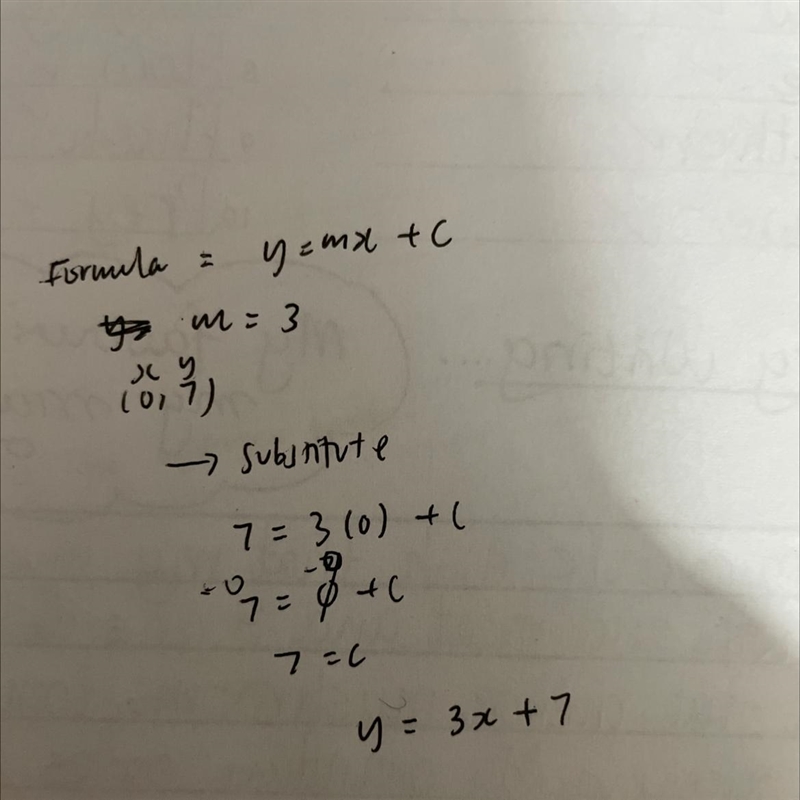 Formula = y = mx + C
m = 3
x y
(0, 7)
→ substitute
7 = 3(0) + C
-0 7 = 0 -0 + C
7 = C
y = 3x + 7